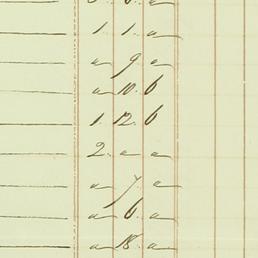 1 1 a
a 9 a
a 10 6
1 12 6
2 a a
a 7 a
a 6 a
a 18 a